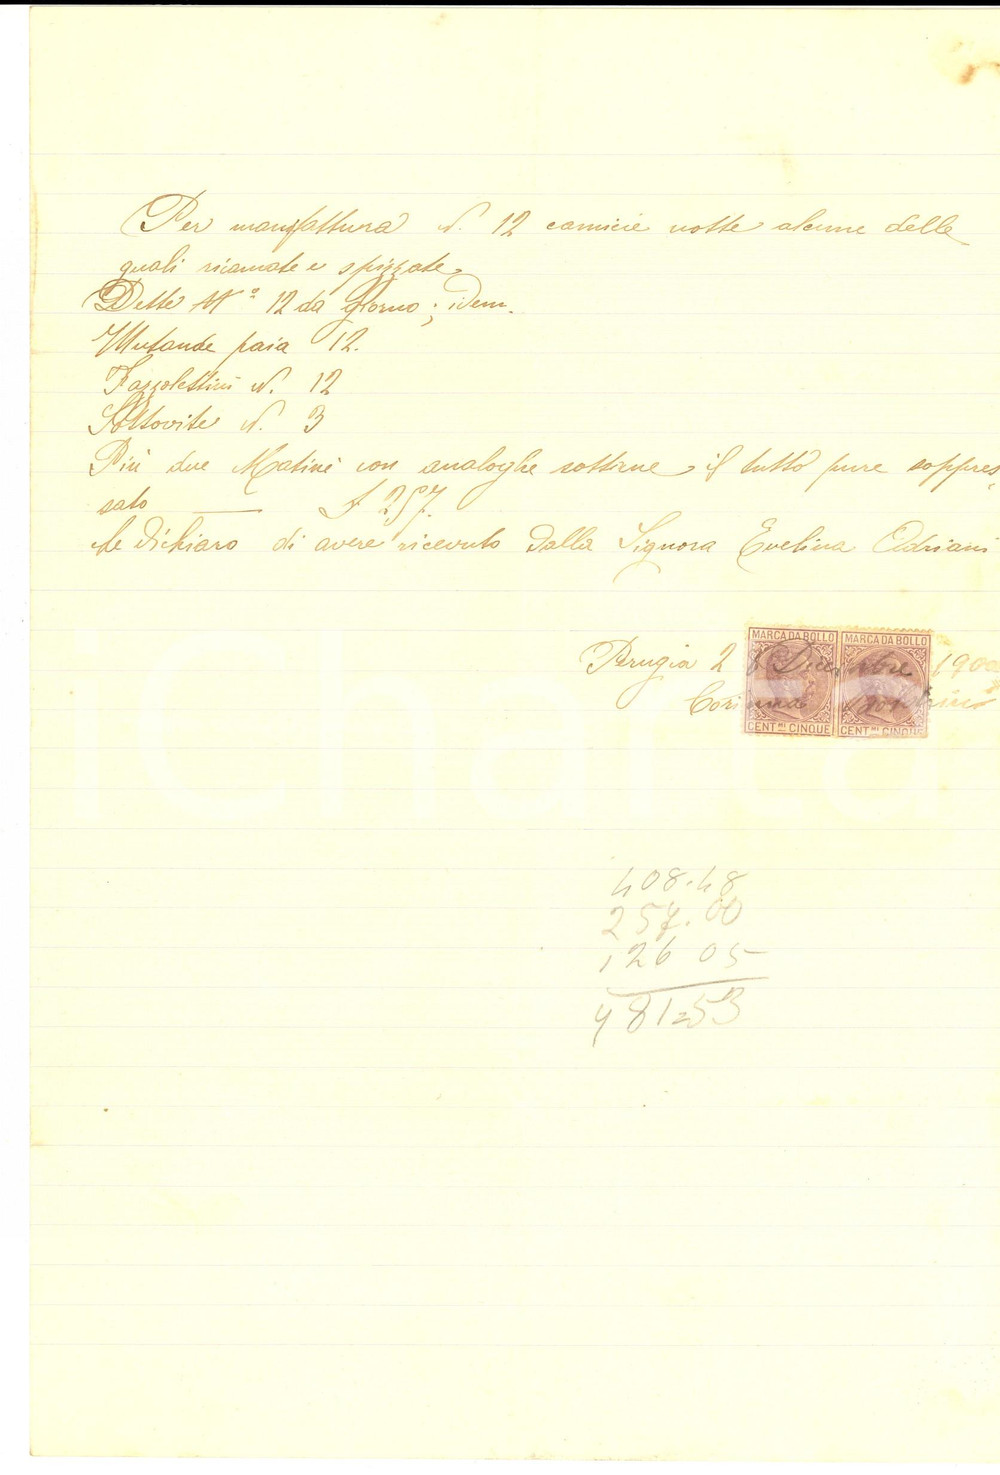 Per manifattura N. 12 camicie notte alcune delle
quali ricamate e spizzate.
Dette Nº 12 da giorno; idem.
Mutande paia 12.
Fazzolettini N. 12
Sottovite N. 3
Più due Matiné con analoghe sottane, il tutto pure soppres-
sato ——— £ 257.
che dichiaro di avere ricevuto dalla Signora Evelina Adriani
Perugia 28 Dicembre 1900
Corinna
MARCA DA BOLLO MARCA DA BOLLO
CENT.MI CINQUE CENT.MI CINQUE
iCharta
408.48
257.00
126 05
481=53